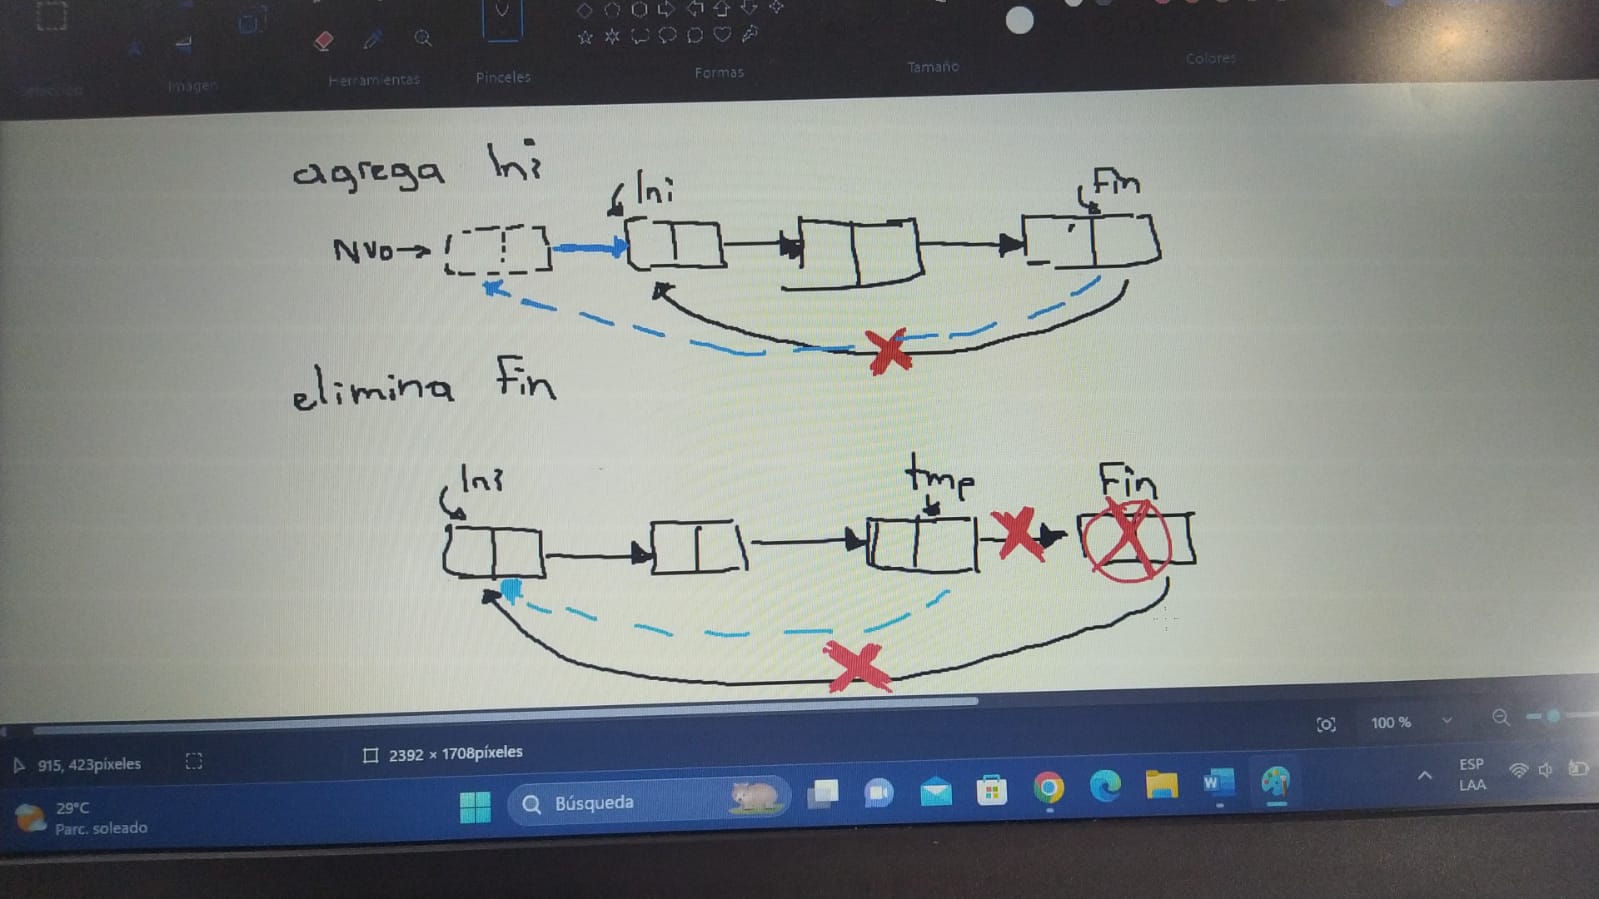 Selección
Imagen
Herramientas
Pinceles
Formas
Tamaño
Colores
agrega Ini
Ini
Fin
Nvo
elimina Fin
Ini
tmp
Fin
100 %
915, 423píxeles
2392 × 1708píxeles
29°C
Parc. soleado
Búsqueda
ESP
LAA